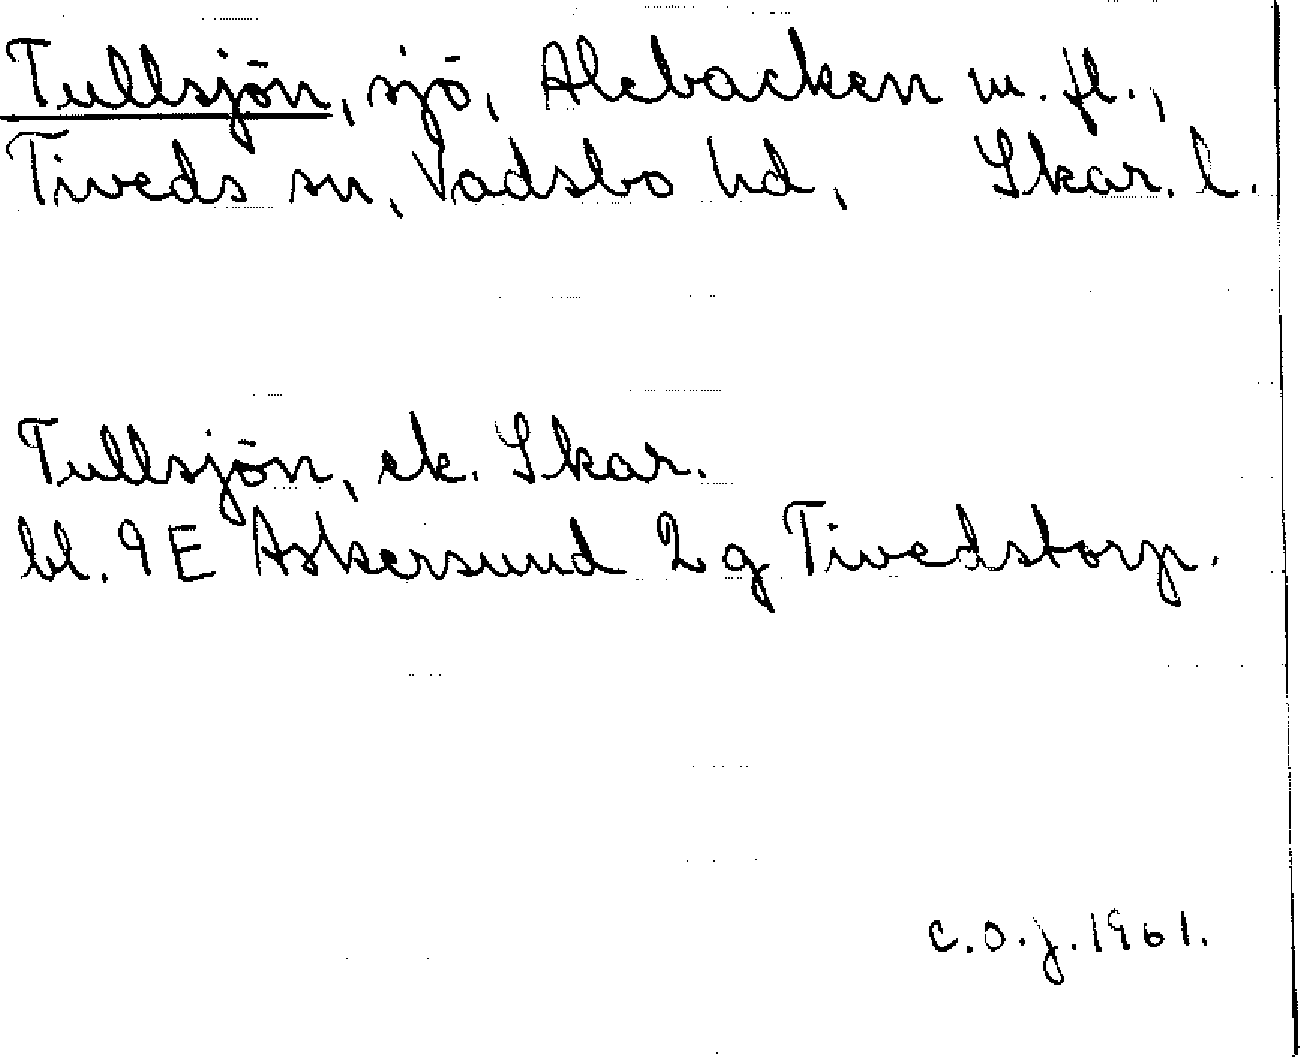 Tullsjön, sjö, Alebacken m. fl.,
Tiveds sn, Vadsbo hd, Skar. l.
Tullsjön, ek. Skar.
bl. 9 E Askersund 2 g Tivedstorp.
C.O.J. 1961.